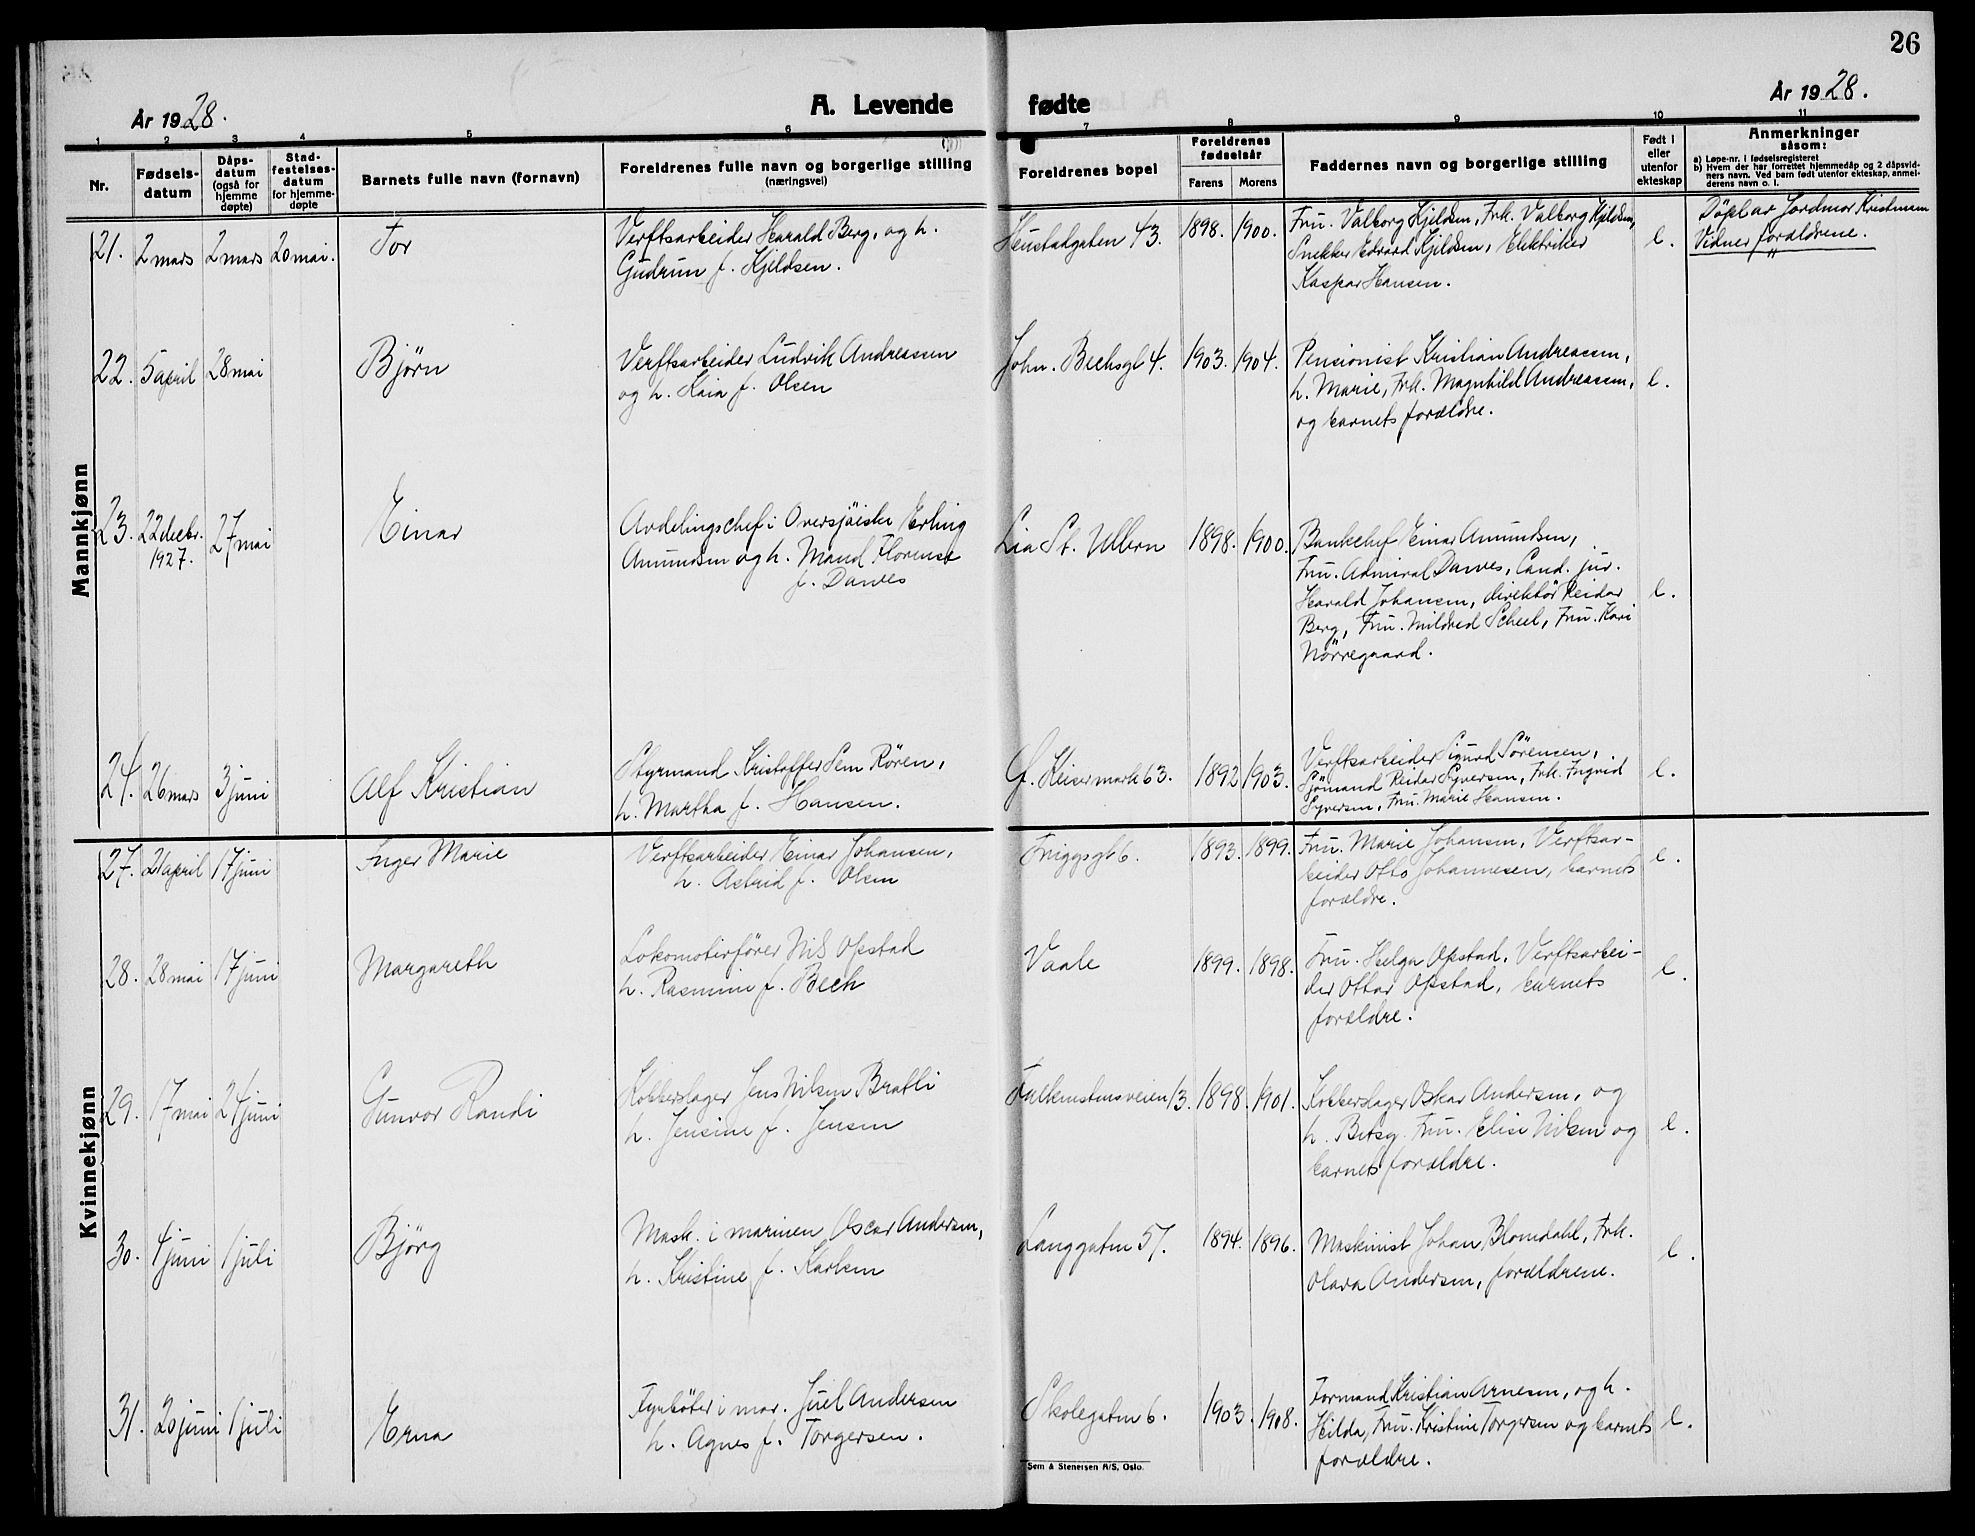 26
År 1928.
A. Levende fødte
År 1928.
1 2 3 4 5 6 7 8 9 10 11
Nr.
Fødsels-
datum
Dåps-
datum
(også for
hjemme
døpte)
Stad-
festelses-
datum
for hjemme-
døpte
Barnets fulle navn (fornavn)
Foreldrenes fulle navn og borgerlige stilling
(næringsvei)
Foreldrenes bopel
Foreldrenes
fødselsår
Farens Morens
Faddernes navn og borgerlige stilling
Født i
eller
utenfor
ekteskap
Anmerkninger
såsom:
a) Løpe-nr. i fødselsregisteret
b) Hvem der har forrettet hjemmedåp og 2 dåpsvid-
ners navn. Ved barn født utenfor ekteskap, anmel-
derens navn o. l.
Mannkjønn
21. 2 mars 2 mars 20 mai. Tor
Verftsarbeider Harald Berg, og h.
Gudrun f. Kjeldsen.
43. 1898. 1900.
Fru. Valborg Kjeldsen, Frk. Valborg Kjeldsen,
Snekker Edvard Kjeldsen, Elektriker
Kaspar Hansen.
e.
Döpt av Jordmor Kristensen
Vidner forældrene.
22. 5 april 28 mai Bjørn
Verftsarbeider Ludvik Andreassen
og h. Kaia f. Olsen
John. Bechsgt 4. 1903. 1904.
Pensionist Kristian Andreassen,
h. Marie, Frk. Magnhild Andreassen,
og barnets forældre.
e.
23. 22 decbr. 27 mai Einar
1927.
Avdelingschef i Oversjöiske Erling
Amundsen og h. Maud Florence
f. Dawes
Lia St. Ullern 1898. 1900.
Bankchef Einar Amundsen,
Fru. Admiral Dawes, Cand. jur.
Harald Johansen, direktör Reidar
Berg, Fru. Mildred Scheel, Fru. Kari
Nörregaard.
e.
24. 26 mars 3 juni Alf Kristian
Styrmand Kristoffer Sem Rören,
h. Martha f. Hansen.
G. Keisermark 63. 1892 1903.
Verftsarbeider Sigurd Sörensen,
Sjömand Reidar Syversen, Frk. Ingrid
Syversen, Fru. Marie Hansen.
e.
Kvinnekjønn
27. 21 april 17 juni Inger Marie
Verftsarbeider Einar Johansen,
h. Astrid f. Olsen
Friggsgt 6. 1893. 1899.
Fru. Marie Johansen, Verftsar-
beider Otto Johannesen, barnets
forældre.
e.
28. 28 mai 17 juni Margareth
Lokomotivförer Nils Opstad
h. Rasmine f. Bech
Vaale 1899. 1898.
Fru. Helga Opstad, Verftsarbei-
der Ottar Opstad, barnets
forældre.
e.
29. 17 mai 24 juni Gunvor Randi
Kobberslager Jens Nilsen Bratli
h. Jensine f. Jensen
Falkenstensveien 13. 1898. 1901.
Kobberslager Oskar Andersen, og
h. Betsy. Fru. Elise Nilsen og
barnets forældre.
e.
30. 4 juni 1 juli Bjørg
Mask. i marinen Oscar Andersen,
h. Kristine f. Karlsen
Langgaten 57. 1894. 1896.
Maskinist Johan Blomdahl, Frk.
Olava Andersen, forældrene.
e.
31. 2 juni 1 juli Erna
Fyrböter i mar. Juel Andersen
h. Agnes f. Torgersen.
Skolegaten 6. 1903. 1908.
Formand Kristian Arnesen, og h.
Hilda, Fru. Kristine Torgersen og barnets
forældre.
e.
Sem & Stenersen A/S, Oslo.